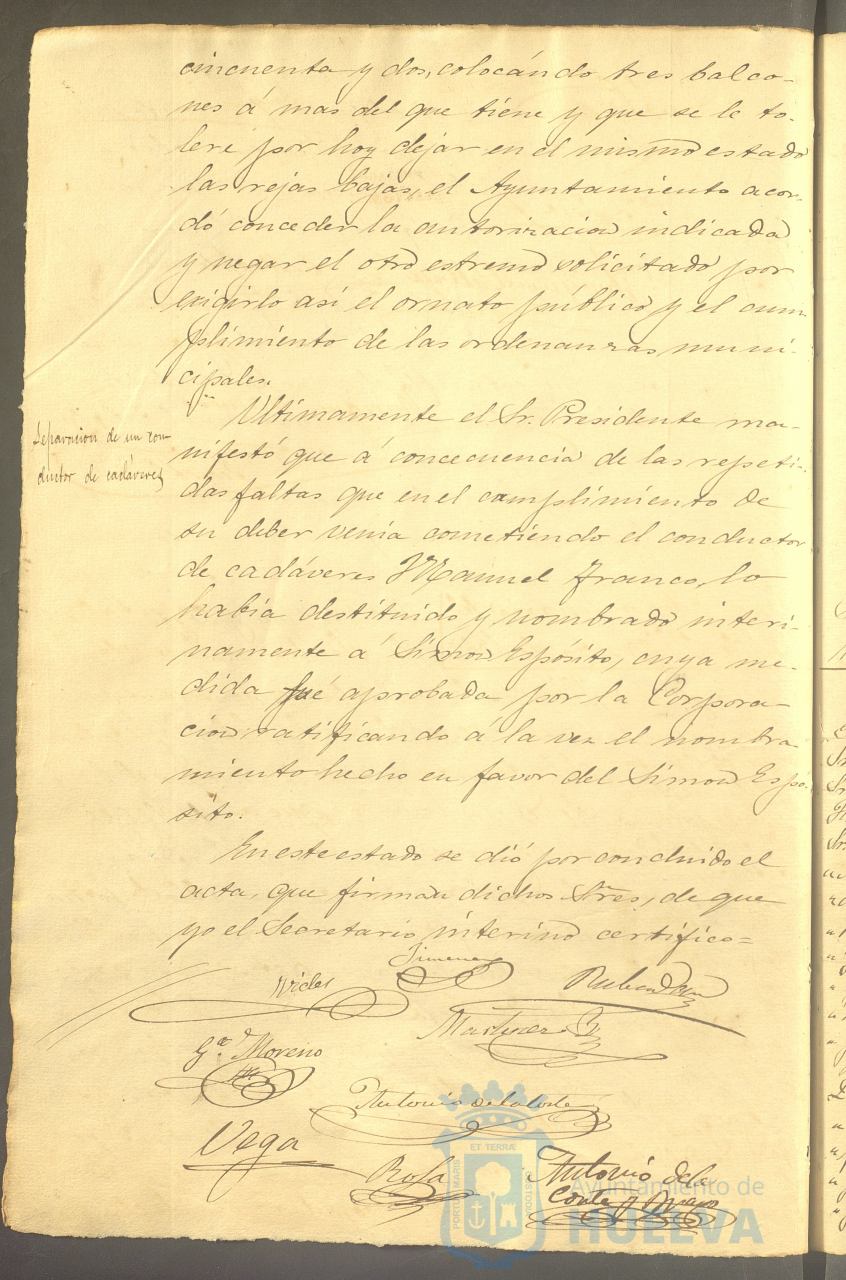 cincuenta y dos, colocando tres balco-
nes á mas del que tiene y que se le to-
lere por hoy dejar en el mismo estado
las rejas bajas, el Ayuntamiento acor-
dó conceder la autorizacion indicada
y negar el otro estremo solicitado por
exigirlo asi el ornato público y el cum-
plimiento de las ordenanzas muni-
cipales.
Separacion de un con-
ductor de cadáveres
Ultimamente el Sr. Presidente ma-
nifestó que á concecuencia de las repeti-
das faltas que en el cumplimiento de
su deber venia cometiendo el conductor
de cadáveres Manuel Franco, lo
habia destituido y nombrado interi-
namente á Simon Espósito, cuya me-
dida fué aprobada por la Corpora-
cion ratificando á la vez el nombra
miento hecho en favor del Simon Espó-
sito.
En este estado se dió por concluido el
acta, que firman dichos Sres, de que
yo el Secretario interino certifico=
Jimenez
Martinez
Ga. Moreno
Antonio de la Corte
Vega
Rosa
Antonio de la
Corte y
PORTUS MARIS
ET TERRÆ
CUSTODIA
Ayuntamiento de
HUELVA